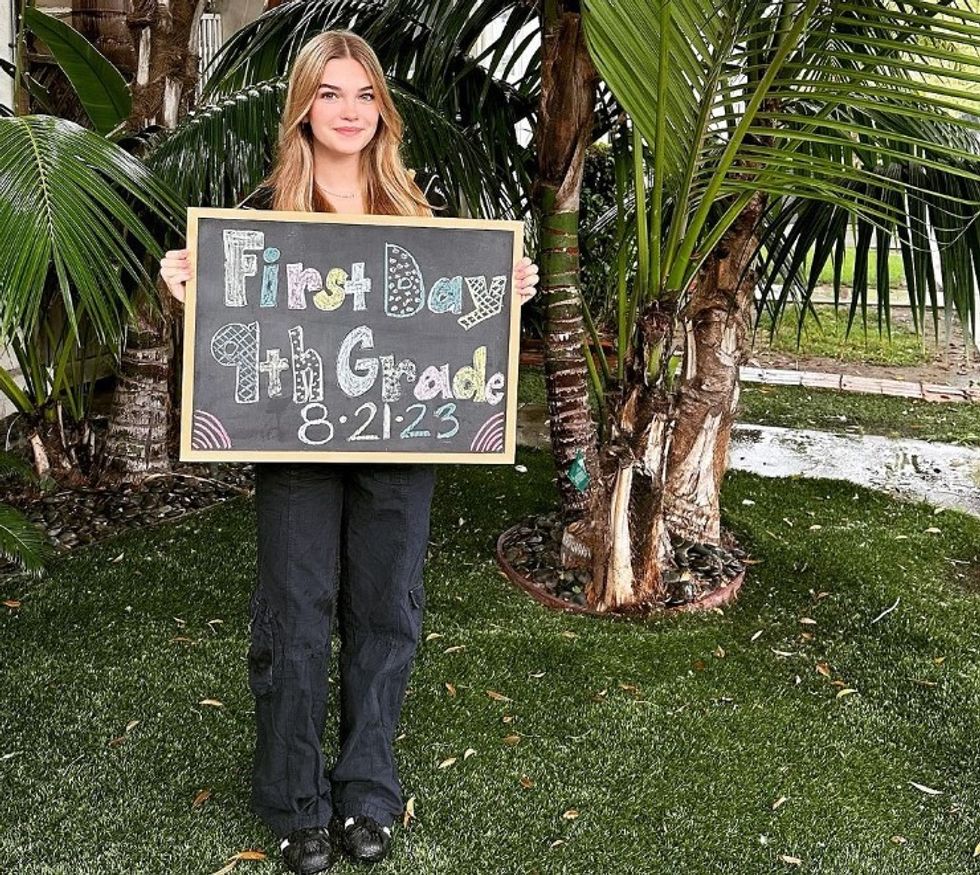 First Day
9th Grade
8·21·23